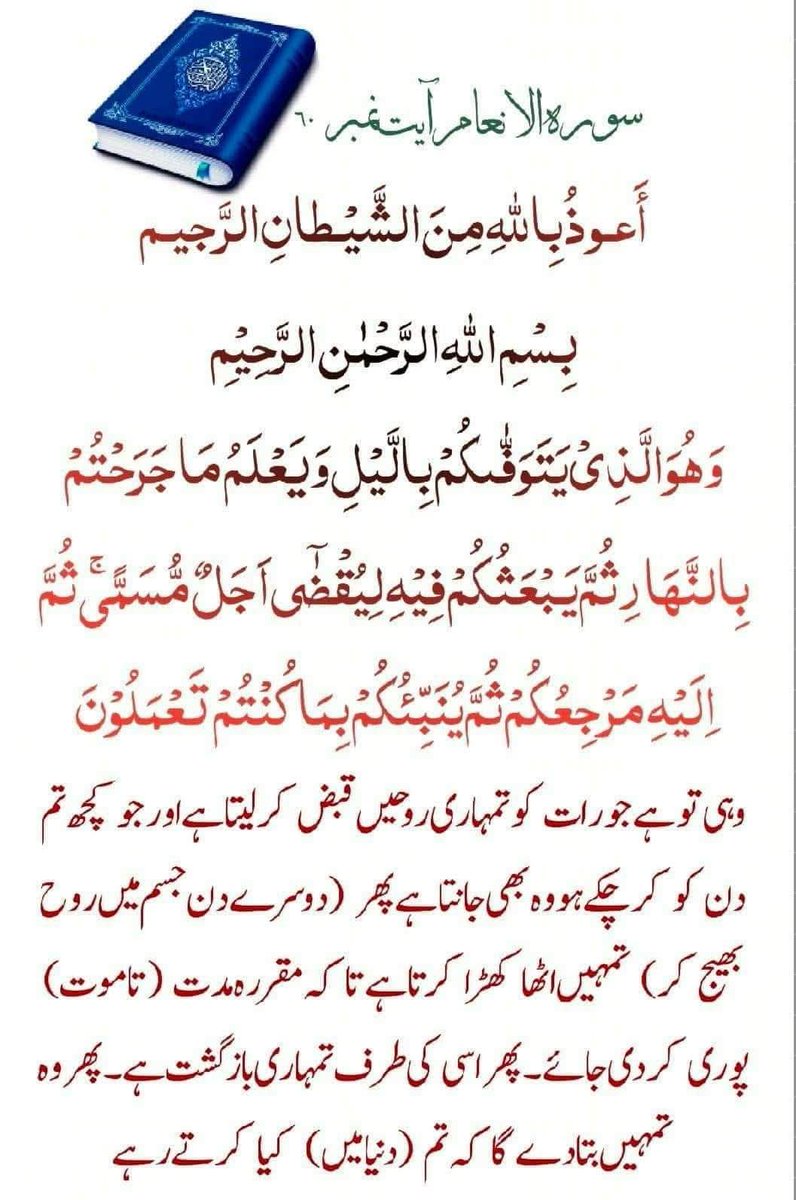 سورہ الانعام آیت نمبر ٦٠
أَعوذُ بِاللهِ مِنَ الشَّيْطانِ الرَّجيم
بِسْمِ اللهِ الرَّحْمٰنِ الرَّحِيْمِ
وَهُوَ الَّذِىْ يَتَوَفّٰىكُمْ بِالَّيْلِ وَيَعْلَمُ مَا جَرَحْتُمْ
بِالنَّهَارِ ثُمَّ يَبْعَثُكُمْ فِيْهِ لِيُقْضٰٓى اَجَلٌ مُّسَمًّىۚ ثُمَّ
اِلَيْهِ مَرْجِعُكُمْ ثُمَّ يُنَبِّئُكُمْ بِمَا كُنْتُمْ تَعْمَلُوْنَ
وہی تو ہے جو رات کو تمہاری روحیں قبض کر لیتا ہے اور جو کچھ تم
دن کو کر چکے ہو وہ بھی جانتا ہے پھر (دوسرے دن جسم میں روح
بھیج کر) تمہیں اٹھا کھڑا کرتا ہے تا کہ مقررہ مدت (تا موت)
پوری کر دی جائے۔ پھر اسی کی طرف تمہاری بازگشت ہے۔ پھر وہ
تمہیں بتا دے گا کہ تم (دنیا میں) کیا کرتے رہے